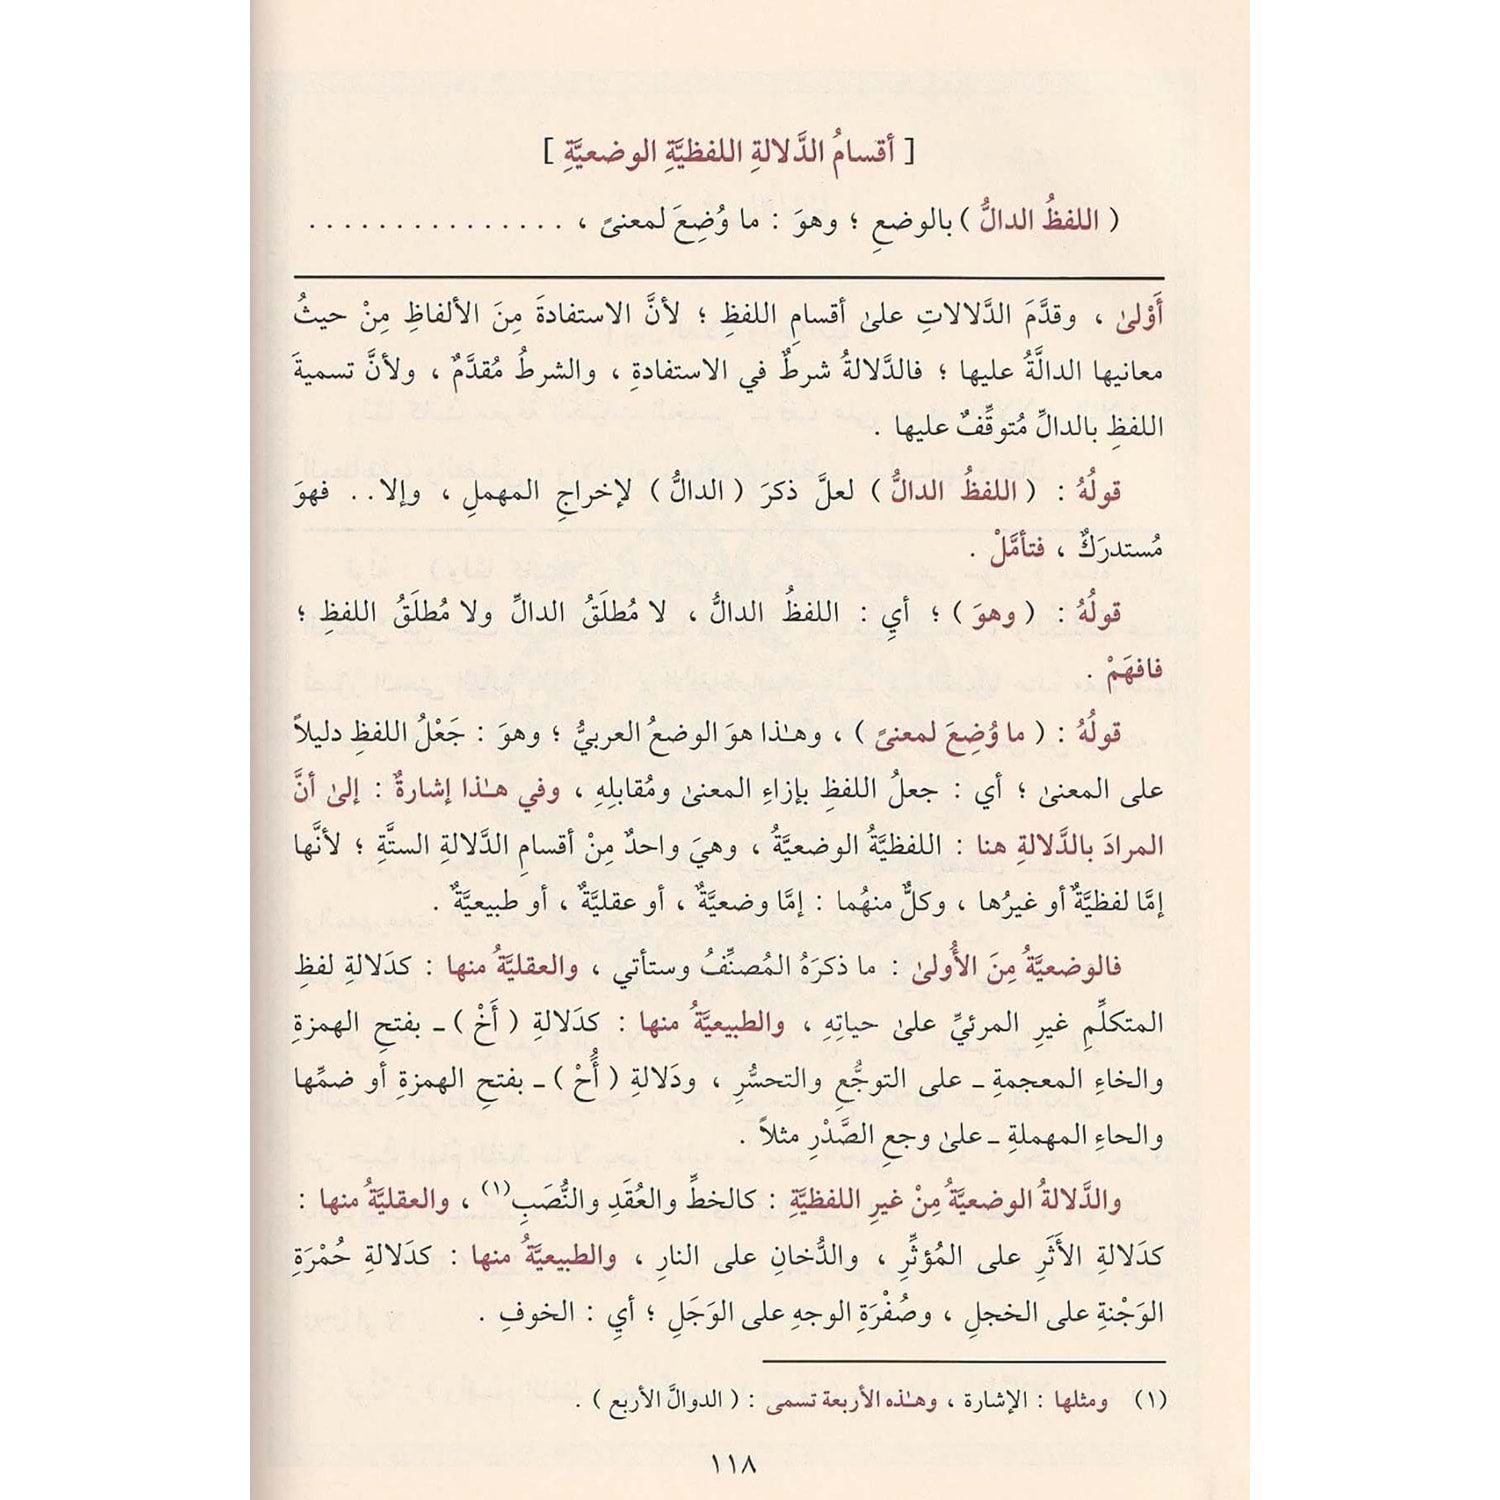 [ أقسامُ الدَّلالةِ اللفظيَّةِ الوضعيَّةِ ]
( اللفظُ الدالُّ ) بالوضعِ ؛ وهوَ : ما وُضِعَ لمعنىً ، . . . . . . . . . . . . . . .
أَوْلىٰ ، وقدَّمَ الدَّلالاتِ علىٰ أقسامِ اللفظِ ؛ لأنَّ الاستفادةَ مِنَ الألفاظِ مِنْ حيثُ
معانيها الدالَّةُ عليها ؛ فالدَّلالةُ شرطٌ في الاستفادةِ ، والشرطُ مُقدَّمٌ ، ولأنَّ تسميةَ
اللفظِ بالدالِّ مُتوقِّفٌ عليها .
قولُهُ : ( اللفظُ الدالُّ ) لعلَّ ذكرَ ( الدالُّ ) لإخراجِ المهملِ ، وإلا . . فهوَ
مُستدرَكٌ ، فتأمَّلْ .
قولُهُ : ( وهوَ ) ؛ أيِ : اللفظُ الدالُّ ، لا مُطلَقُ الدالِّ ولا مُطلَقُ اللفظِ ؛
فافهَمْ .
قولُهُ : ( ما وُضِعَ لمعنىً ) ، وهـٰذا هوَ الوضعُ العربيُّ ؛ وهوَ : جَعْلُ اللفظِ دليلاً
على المعنىٰ ؛ أي : جعلُ اللفظِ بإزاءِ المعنىٰ ومُقابلِهِ ، وفي هـٰذا إشارةٌ : إلىٰ أنَّ
المرادَ بالدَّلالةِ هنا : اللفظيَّةُ الوضعيَّةُ ، وهيَ واحدٌ مِنْ أقسامِ الدَّلالةِ الستَّةِ ؛ لأنَّها
إمَّا لفظيَّةٌ أو غيرُها ، وكلٌّ منهُما : إمَّا وضعيَّةٌ ، أو عقليَّةٌ ، أو طبيعيَّةٌ .
فالوضعيَّةُ مِنَ الأُولىٰ : ما ذكرَهُ المُصنِّفُ وستأتي ، والعقليَّةُ منها : كدَلالةِ لفظِ
المتكلِّمِ غيرِ المرئيِّ علىٰ حياتِهِ ، والطبيعيَّةُ منها : كدَلالةِ ( أَخْ ) ـ بفتحِ الهمزةِ
والخاءِ المعجمةِ ـ على التوجُّعِ والتحسُّرِ ، ودَلالةِ ( أَُحْ ) ـ بفتحِ الهمزةِ أو ضمِّها
والحاءِ المهملةِ ـ علىٰ وجعِ الصَّدْرِ مثلاً .
والدَّلالةُ الوضعيَّةُ مِنْ غيرِ اللفظيَّةِ : كالخطِّ والعُقَدِ والنُّصَبِ(١) ، والعقليَّةُ منها :
كدَلالةِ الأَثَرِ على المُؤثِّرِ ، والدُّخانِ على النارِ ، والطبيعيَّةُ منها : كدَلالةِ حُمْرَةِ
الوَجْنةِ على الخجلِ ، وصُفْرَةِ الوجهِ على الوَجَلِ ؛ أيِ : الخوفِ .
(١) ومثلها : الإشارة ، وهـٰذه الأربعة تسمى : ( الدوالَّ الأربع ) .
١١٨